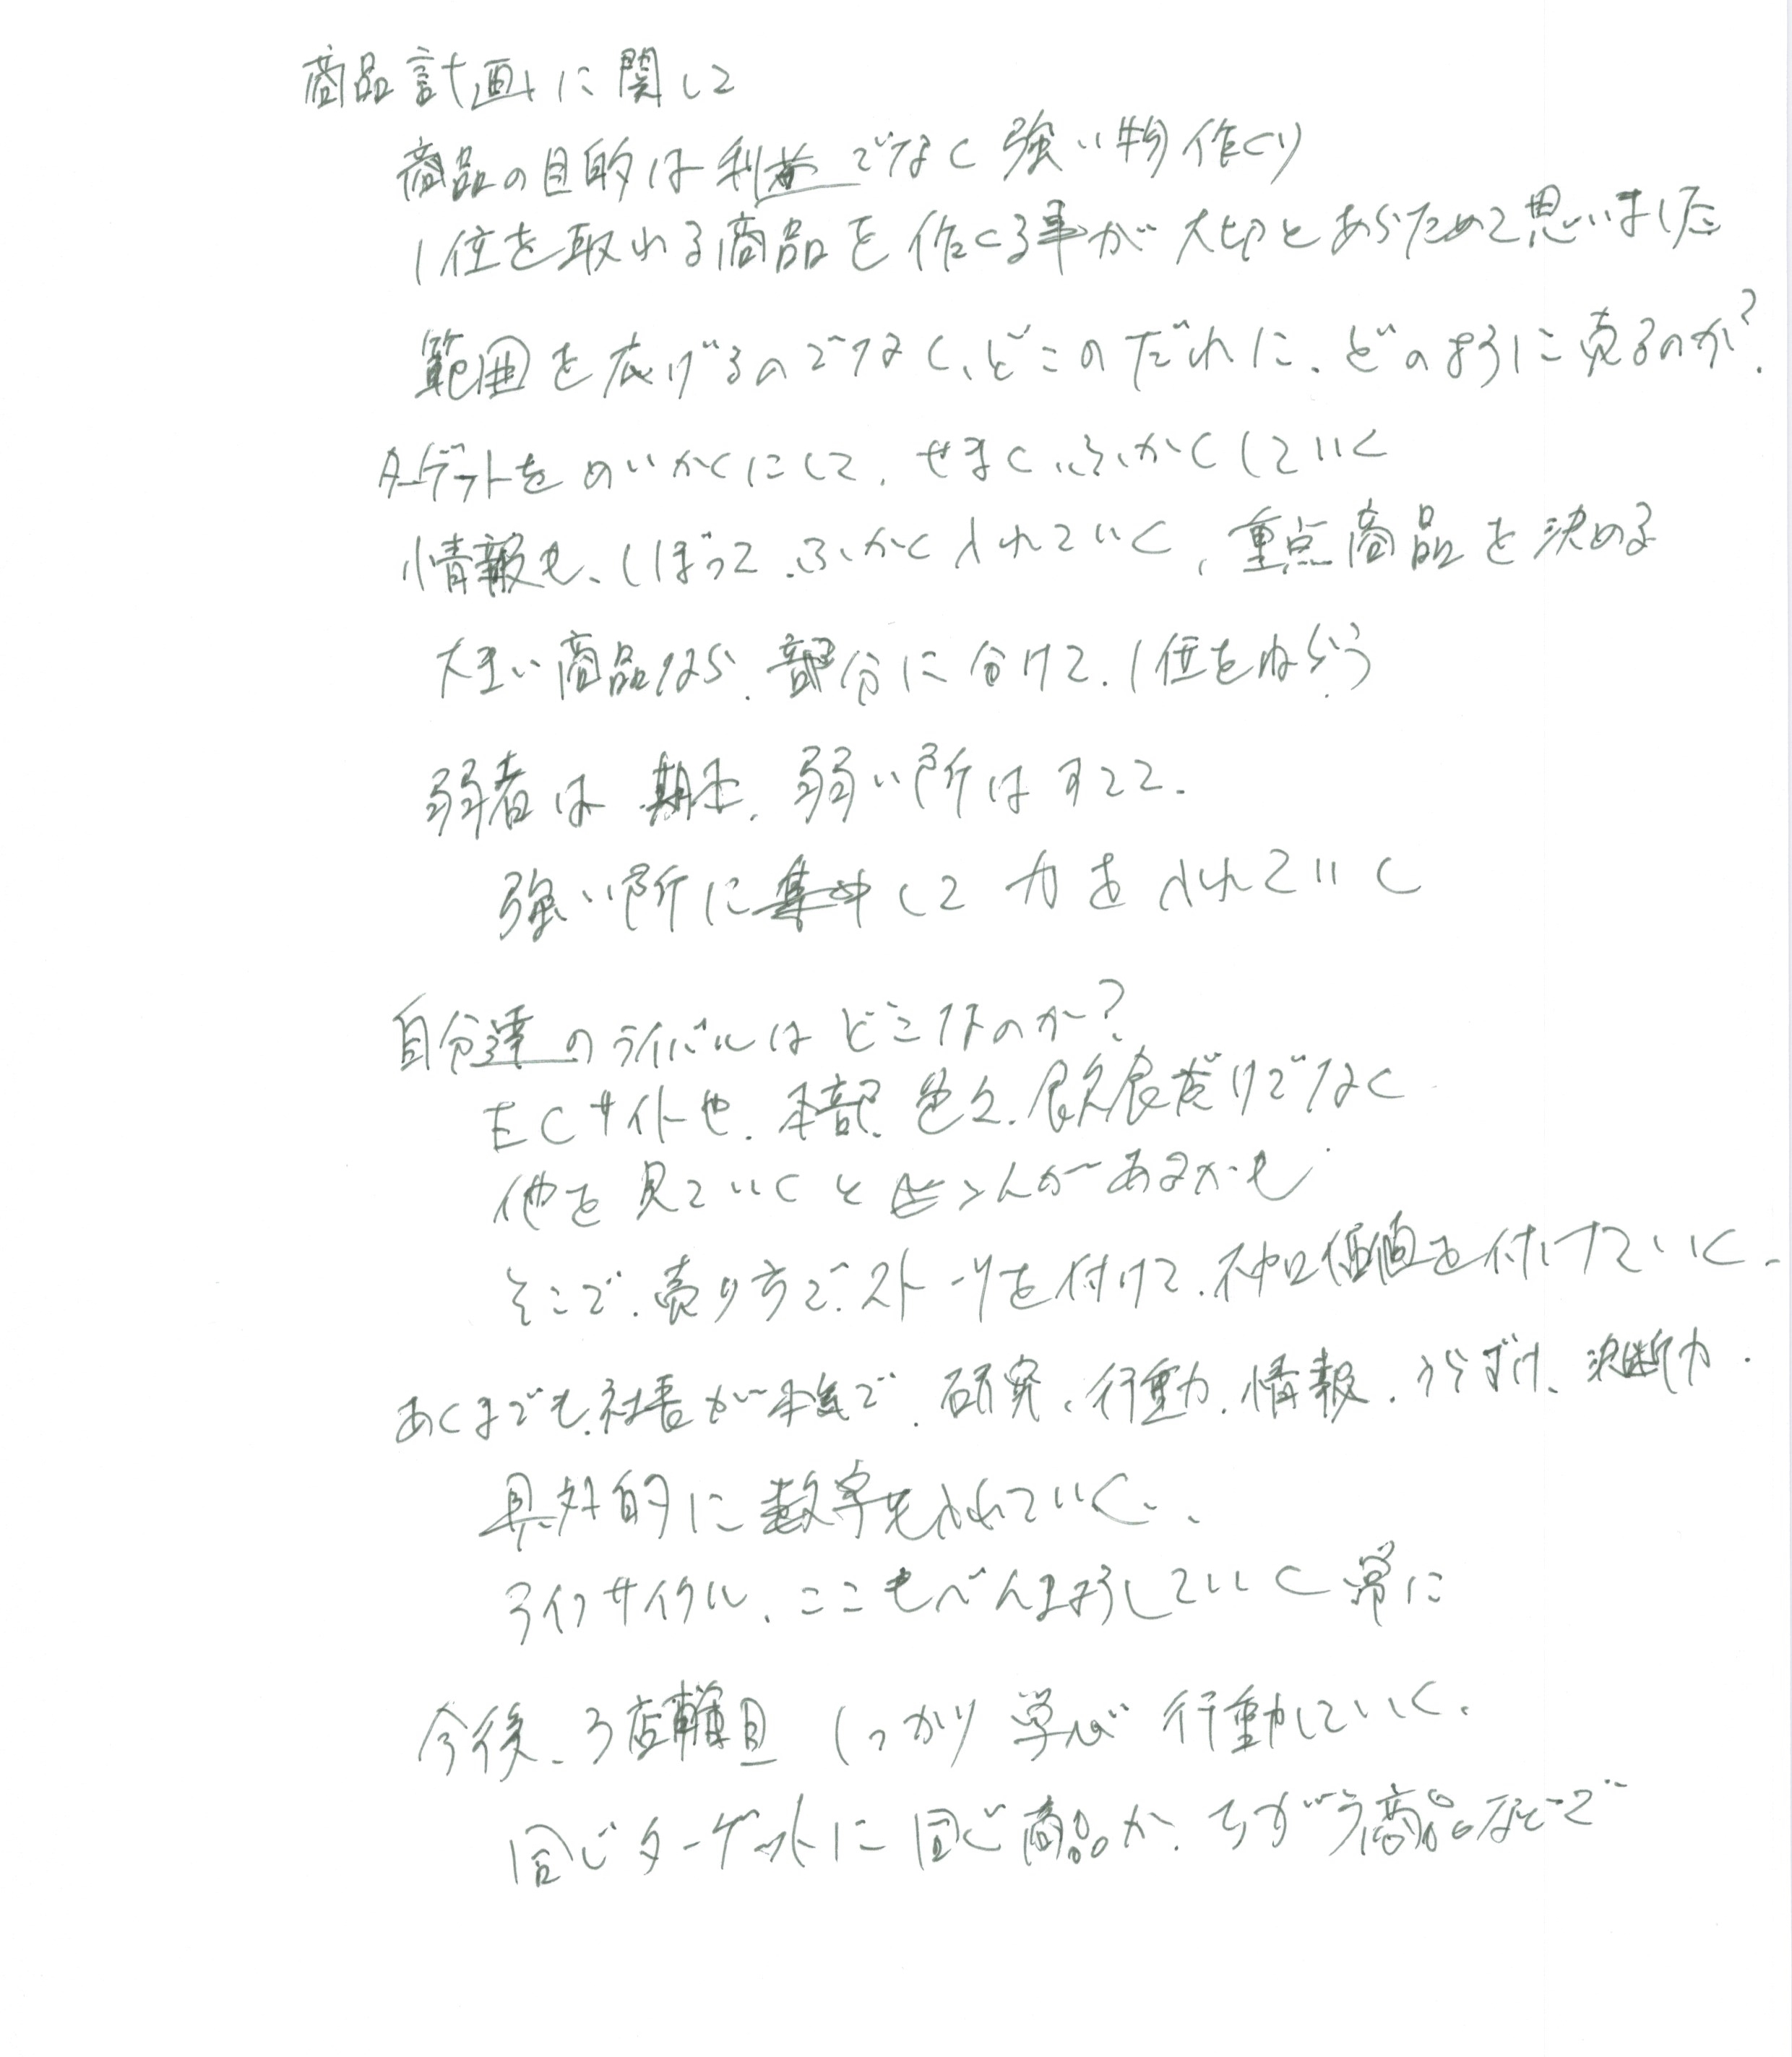 商品計画に関して
商品の目的は利益でなく強い物作くり
1位を取れる商品を作くる事が大切とあらためて思いました
範囲を広げるのでなく、どこのだれに、どのように売るのか?
ターゲットをめいかくにして、せまく、ふかくしていく
情報も、しぼって、ふかく入れていく、重点商品を決める
大きい商品なら、部分に分けて、1位をねらう
弱者は 弱い所はすてて、
強い所に集中して力を入れていく
自分達のライバルはどこなのか?
ECサイトや、本部、色々、飲食だけでなく
他を見ていくとヒントがあるかも
そこで、売り方で、ストーリを付けて、付加価値を付けていく、
あくまでも、社長が本気で、研究、行動、情報、うらずけ、決断力、
具対的に数字も入れていく、
ライフサイクル、ここもべんきょうしていく常に
今後、3店舗目 しっかり学び行動していく、
同じターゲットに同じ商品か、ちがう商品なで